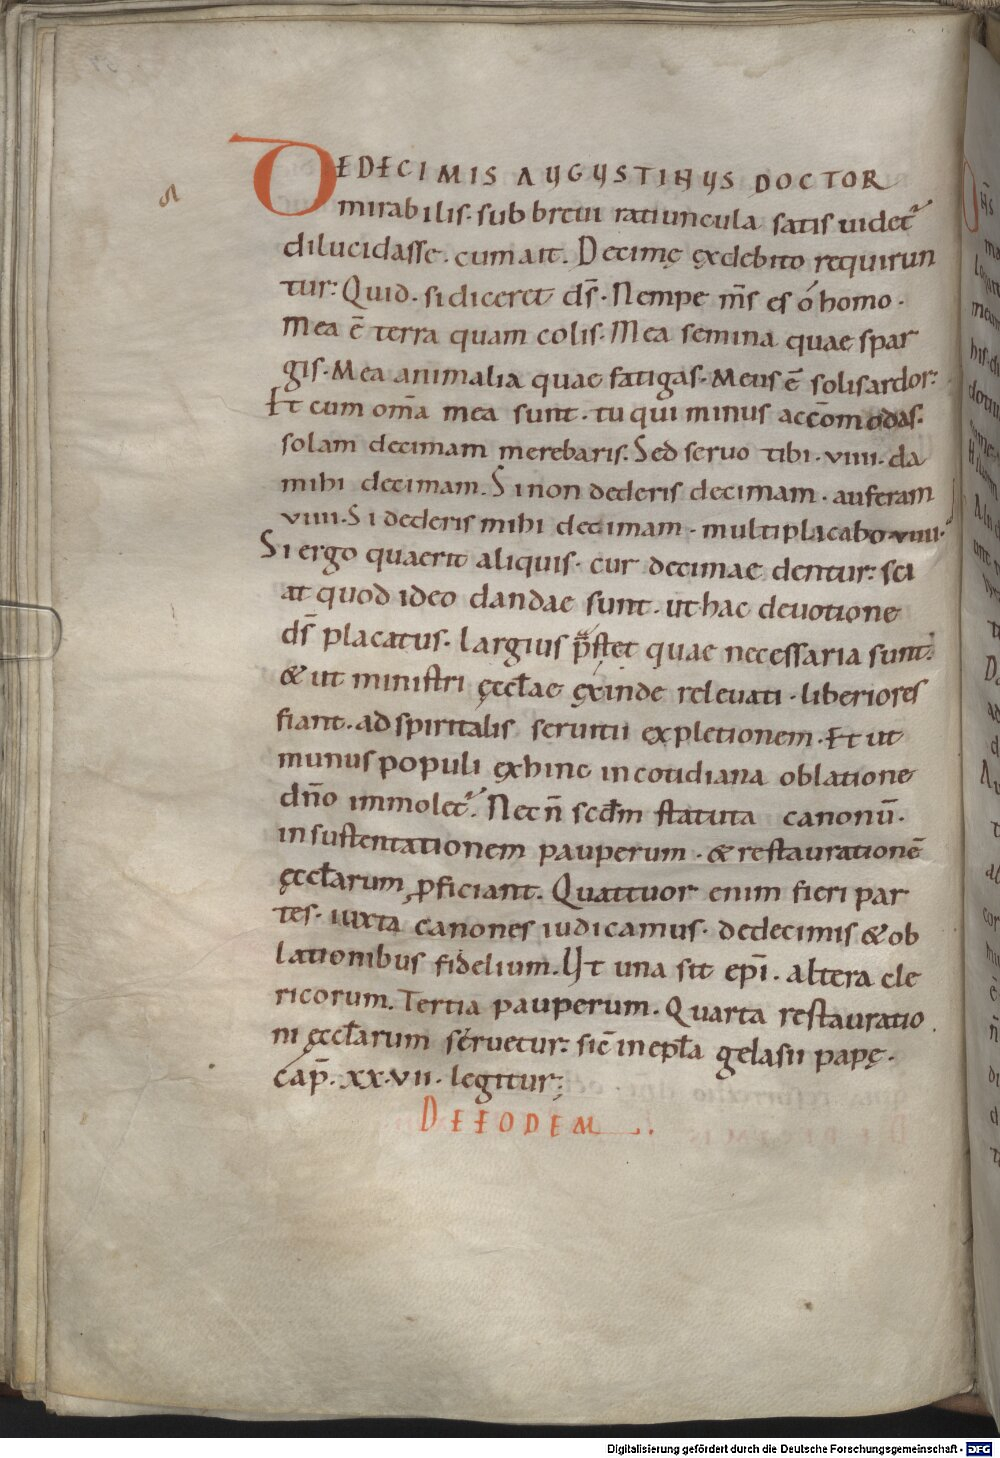 DE DECIMIS AUGUSTINUS DOCTOR
mirabilis· sub breui ratiuncula satis uidet᷑
dilucidasse· cum ait. Decimę ex debito requirun
tur: Quid· si diceret ds̄· Nempe m̄s es ó homo·
Mea ē terra quam colis· Mea semina quae spar
gis· Mea animalia quae fatigas· Meus ē solis ardor:
Et cum om̄a mea sunt· tu qui minus accōmodas·
solam decimam merebaris. Sed seruo tibi· viiii· da
mihi decimam. Si non dederis decimam· auferam
viiii· Si dederis mihi decimam· multiplacabo viiii·
Si ergo quaerit aliquis· cur decimae dentur: sci
at quod ideo dandae sunt· ut hac deuotione
ds̄ placatus· largius p̄stet quae necessaria sunt:
& ut ministri ęccłae exinde releuati· liberiores
fiant· ad spiritalis seruitii expletionem· Et ut
munus populi exhinc in cotidiana oblatione
dn̄o immolet᷑. Nec n̄ scd̄m statuta canonū·
in sustentationem pauperum· & restaurationē
ęccłarum ꝓficiant. Quattuor enim fieri par
tes· iuxta canones iudicamus· de decimis & ob
lationibus fidelium. Ut una sit ep̄i· altera cle
ricorum. Tertia pauperum. Quarta restauratio
ni ęccłarum seruetur: sic̄ in epła gelasii papę·
cap̄· xx·vii· legitur;
DE EODEM.
Digitalisierung gefördert durch die Deutsche Forschungsgemeinschaft - DFG